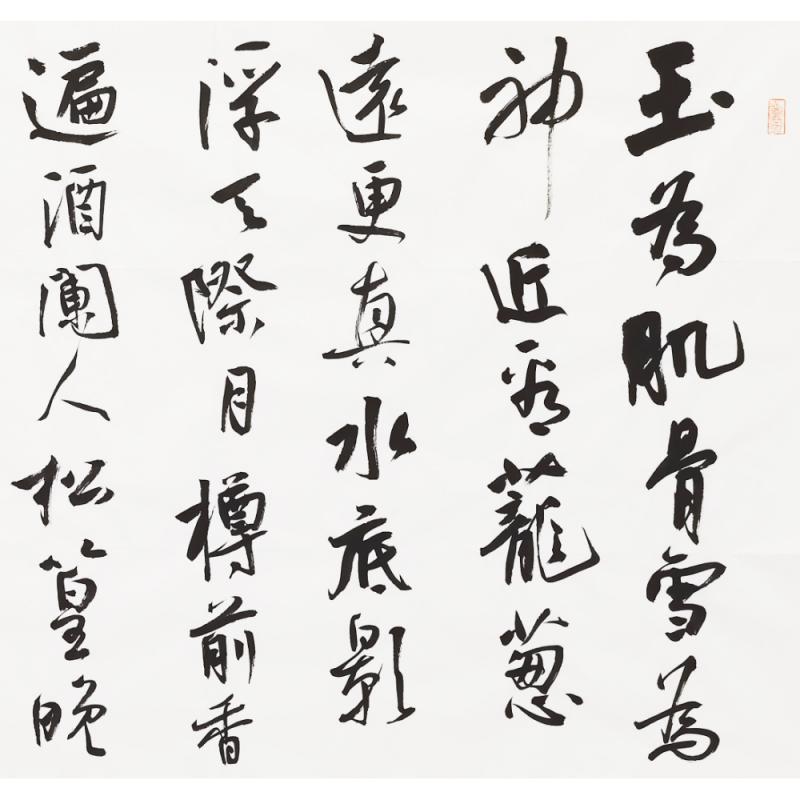 玉為肌骨雪為
神近看蘢葱
遠更真水底影
浮天際月樽前香
遍酒闌人松篁晚